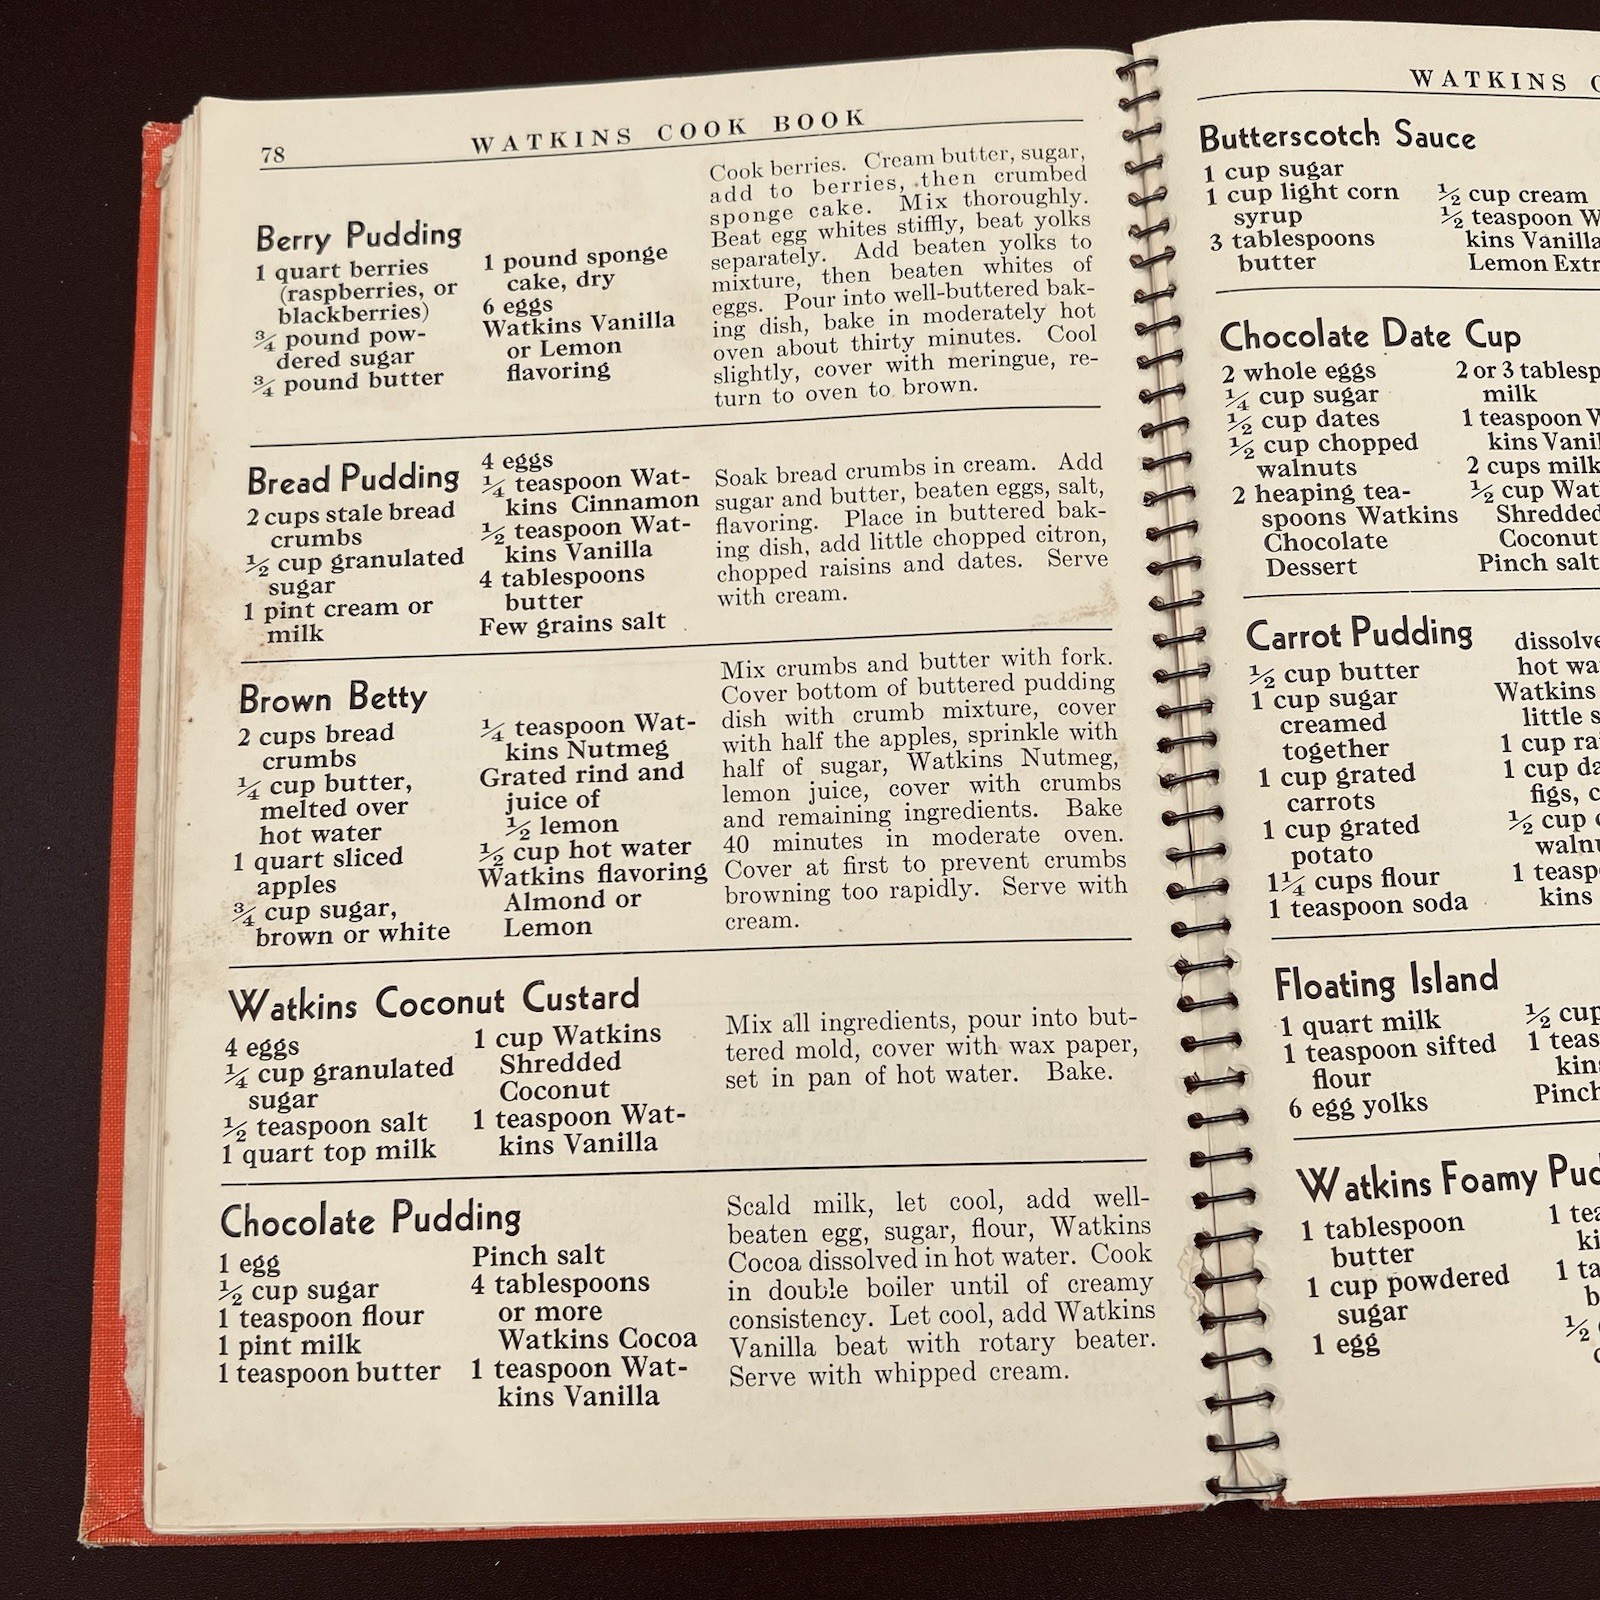 78
WATKINS COOK BOOK
Berry Pudding
1 quart berries
(raspberries, or
blackberries)
¾ pound pow-
dered sugar
¾ pound butter
1 pound sponge
cake, dry
6 eggs
Watkins Vanilla
or Lemon
flavoring
Cook berries. Cream butter, sugar,
add to berries, then crumbed
sponge cake. Mix thoroughly.
Beat egg whites stiffly, beat yolks
separately. Add beaten yolks to
mixture, then beaten whites of
eggs. Pour into well-buttered bak-
ing dish, bake in moderately hot
oven about thirty minutes. Cool
slightly, cover with meringue, re-
turn to oven to brown.
Bread Pudding
2 cups stale bread
crumbs
½ cup granulated
sugar
1 pint cream or
milk
4 eggs
¼ teaspoon Wat-
kins Cinnamon
½ teaspoon Wat-
kins Vanilla
4 tablespoons
butter
Few grains salt
Soak bread crumbs in cream. Add
sugar and butter, beaten eggs, salt,
flavoring. Place in buttered bak-
ing dish, add little chopped citron,
chopped raisins and dates. Serve
with cream.
Brown Betty
2 cups bread
crumbs
¼ cup butter,
melted over
hot water
1 quart sliced
apples
¾ cup sugar,
brown or white
¼ teaspoon Wat-
kins Nutmeg
Grated rind and
juice of
½ lemon
½ cup hot water
Watkins flavoring
Almond or
Lemon
Mix crumbs and butter with fork.
Cover bottom of buttered pudding
dish with crumb mixture, cover
with half the apples, sprinkle with
half of sugar, Watkins Nutmeg,
lemon juice, cover with crumbs
and remaining ingredients. Bake
40 minutes in moderate oven.
Cover at first to prevent crumbs
browning too rapidly. Serve with
cream.
Watkins Coconut Custard
4 eggs
¼ cup granulated
sugar
½ teaspoon salt
1 quart top milk
1 cup Watkins
Shredded
Coconut
1 teaspoon Wat-
kins Vanilla
Mix all ingredients, pour into but-
tered mold, cover with wax paper,
set in pan of hot water. Bake.
Chocolate Pudding
1 egg
½ cup sugar
1 teaspoon flour
1 pint milk
1 teaspoon butter
Pinch salt
4 tablespoons
or more
Watkins Cocoa
1 teaspoon Wat-
kins Vanilla
Scald milk, let cool, add well-
beaten egg, sugar, flour, Watkins
Cocoa dissolved in hot water. Cook
in double boiler until of creamy
consistency. Let cool, add Watkins
Vanilla beat with rotary beater.
Serve with whipped cream.
WATKINS
Butterscotch Sauce
1 cup sugar
1 cup light corn
syrup
3 tablespoons
butter
½ cup cream
½ teaspoon W
kins Vanilla
Lemon Extr
Chocolate Date Cup
2 whole eggs
¼ cup sugar
½ cup dates
½ cup chopped
walnuts
2 heaping tea-
spoons Watkins
Chocolate
Dessert
2 or 3 tablesp
milk
1 teaspoon W
kins Vanil
2 cups milk
½ cup Wat
Shredded
Coconut
Pinch salt
Carrot Pudding
½ cup butter
1 cup sugar
creamed
together
1 cup grated
carrots
1 cup grated
potato
1¼ cups flour
1 teaspoon soda
dissolve
hot wa
Watkins
little s
1 cup ra
1 cup da
figs, c
½ cup
walnu
1 teasp
kins
Floating Island
1 quart milk
1 teaspoon sifted
flour
6 egg yolks
½ cup
1 teas
kins
Pinch
Watkins Foamy Pud
1 tablespoon
butter
1 cup powdered
sugar
1 egg
1 tea
ki
1 ta
b
½